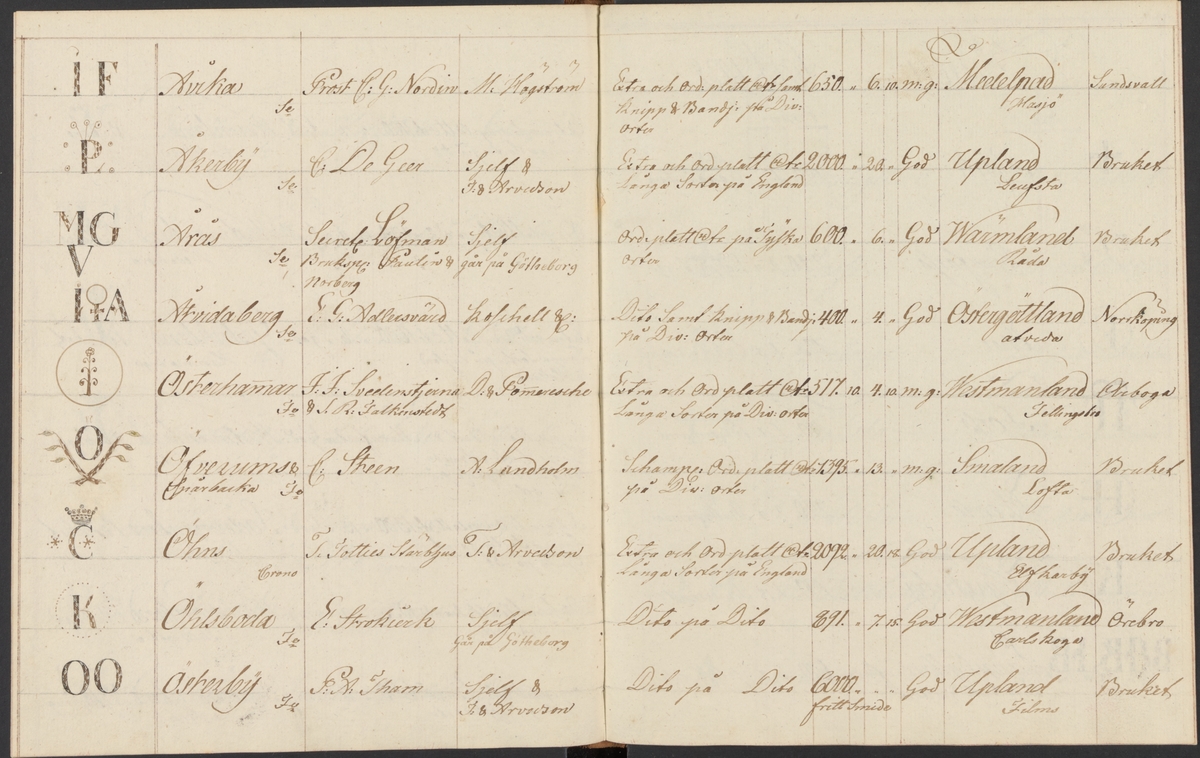 IF Åvika Prost C: G: Nordin M: Högström Extra och Ord: platt @tc samt 650. „ 6. 10. m: g: Medelpad Sundsvall
Se Knipp & Bandj: på Div: Hasjö
Orter
P Åkerby C: De Geer Sjelf & Extra och Ord: platt @tc 2000. „ 20. „ God Upland Bruket
Se F: & Arvedson Långa Sorter på England Leufsta
MG Årås Secrete: Löfman Sjelf Ord: platt @tc på Tyska 600 „ 6. „ God Wärmland Bruket
V Se Bruksp: Paulin & går på Götheborg Orter Råda
Norberg
HA Åtvidaberg E: G: Adlersvärd Koschell &C: Dito Samt Knipp & Bandj: 400 „ 4. „ God Östergöttland Norrköping
So på Div: Orter atveda
Österhammar J. J. Svedenstjerna D: & Pommeresche Extra och Ord platt @tc 517. 10. 4. 10. m: g: Westmanland Arboga
So & J. R: Falkenstedt Långa Sorter på Div: orter Fellingsbro
Ö Öfverums & C: Steen A: Lundholm Schamp: Ord: platt @tc 1395. „ 13. „ m: g: Småland Bruket
Gnarbacka So på Div: Orter Lofta
C Öhns T: Totties Stärbhus T: & Arvedson Extra och Ord platt @tc 2092 „ 20. 18. God Upland Bruket
Crono Långa Sorter på England Elfkarby
K Öhlsboda E: Strokirk Sjelf Dito på Dito 891. „ 7. 15. God Westmanland Örebro
So Går på Götheborg Carlskoga
OO Österby P: A: Tham Sjelf & Dito på Dito 6000. „ „ God Upland Bruket
So F: & Arvedson fritt Smide Films